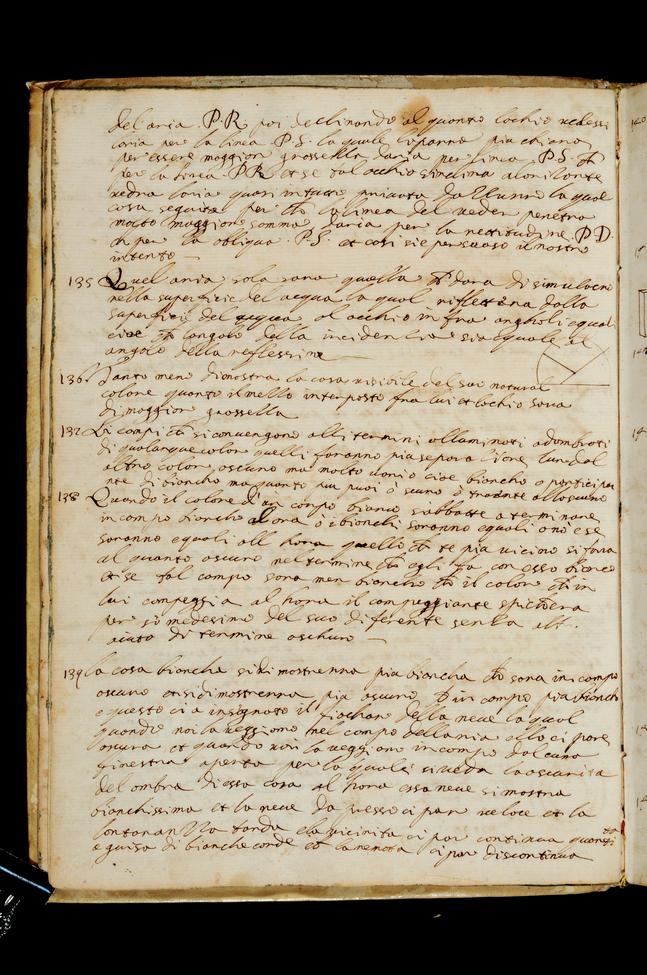 del aria. P.R. poi declinando al quanto lochio vedessi
laria per la linea. P.S. la quale li parra piu chiara
per essere maggior grossezza daria per linea. P.S. ch
per la linea PR. et se tal occhio sinclina alorizonte
vedra laria quasi in tutto privata dazzurro la qual
cosa seguita per ch la linea del veder penetra
molto maggior somma daria per la rettitudine. P.D.
ch per la obliqua. P.S. et cosi sie persuaso il nostro
intento
135 Quel aria sola sara quella ch dara di simulacri
nella superficie del acqua la qual riflettera dalla
superficie del acqua al occhio in fra angholi equali
cioe ch langolo della incidentia sia equale al
angolo della reflessione
136 Tanto meno dimostra la cosa visibile del suo natural
colore quanto il mezzo interposto fra lui et lochio sara
di maggior grossezza
137 Li campi ch si convengono alli termini alluminati adombrati
di qualunque color quelli faranno piu separatione lun dal
altro color oscuro ma molto vario cioe biancho o partecipan
te di biancho ma quanto piu puoi o scuro o tradente alloscuro
138 Quando il colore d'un corpo bianco sabbatte a terminare
in campo biancho alora o i bianchi saranno equali o no et se
saranno equali all hora quello ch te piu vicino si fara
al quanto oscuro nel termine ch egli fa con esso bianco
et se tal campo sara men biancho ch il colore ch in
lui campeggia al hora il campeggiante spichera
per si medesimo del suo diferente senza alt.
aiuto di termine oschuro
139 la cosa biancha si dimostrerra piu biancha ch sara in campo
oscuro et si dimostrerra piu oscura ch in campo piu bianch
e questo ci a insegnato il fiochar della neve la qual
quando noi la veggiamo nel campo dellaria ella ci pare
oscura et quando noi la veggiamo in campo dalcuna
finestra aperta per la quale si veda la oscurita
del ombra di essa casa al hora essa neve si mostra
bianchissima et la neve da presso ci par veloce et la
lontana tarda et la vicinita ci par continua quantita
e guisa di bianche corde et la remota ci par discontinua